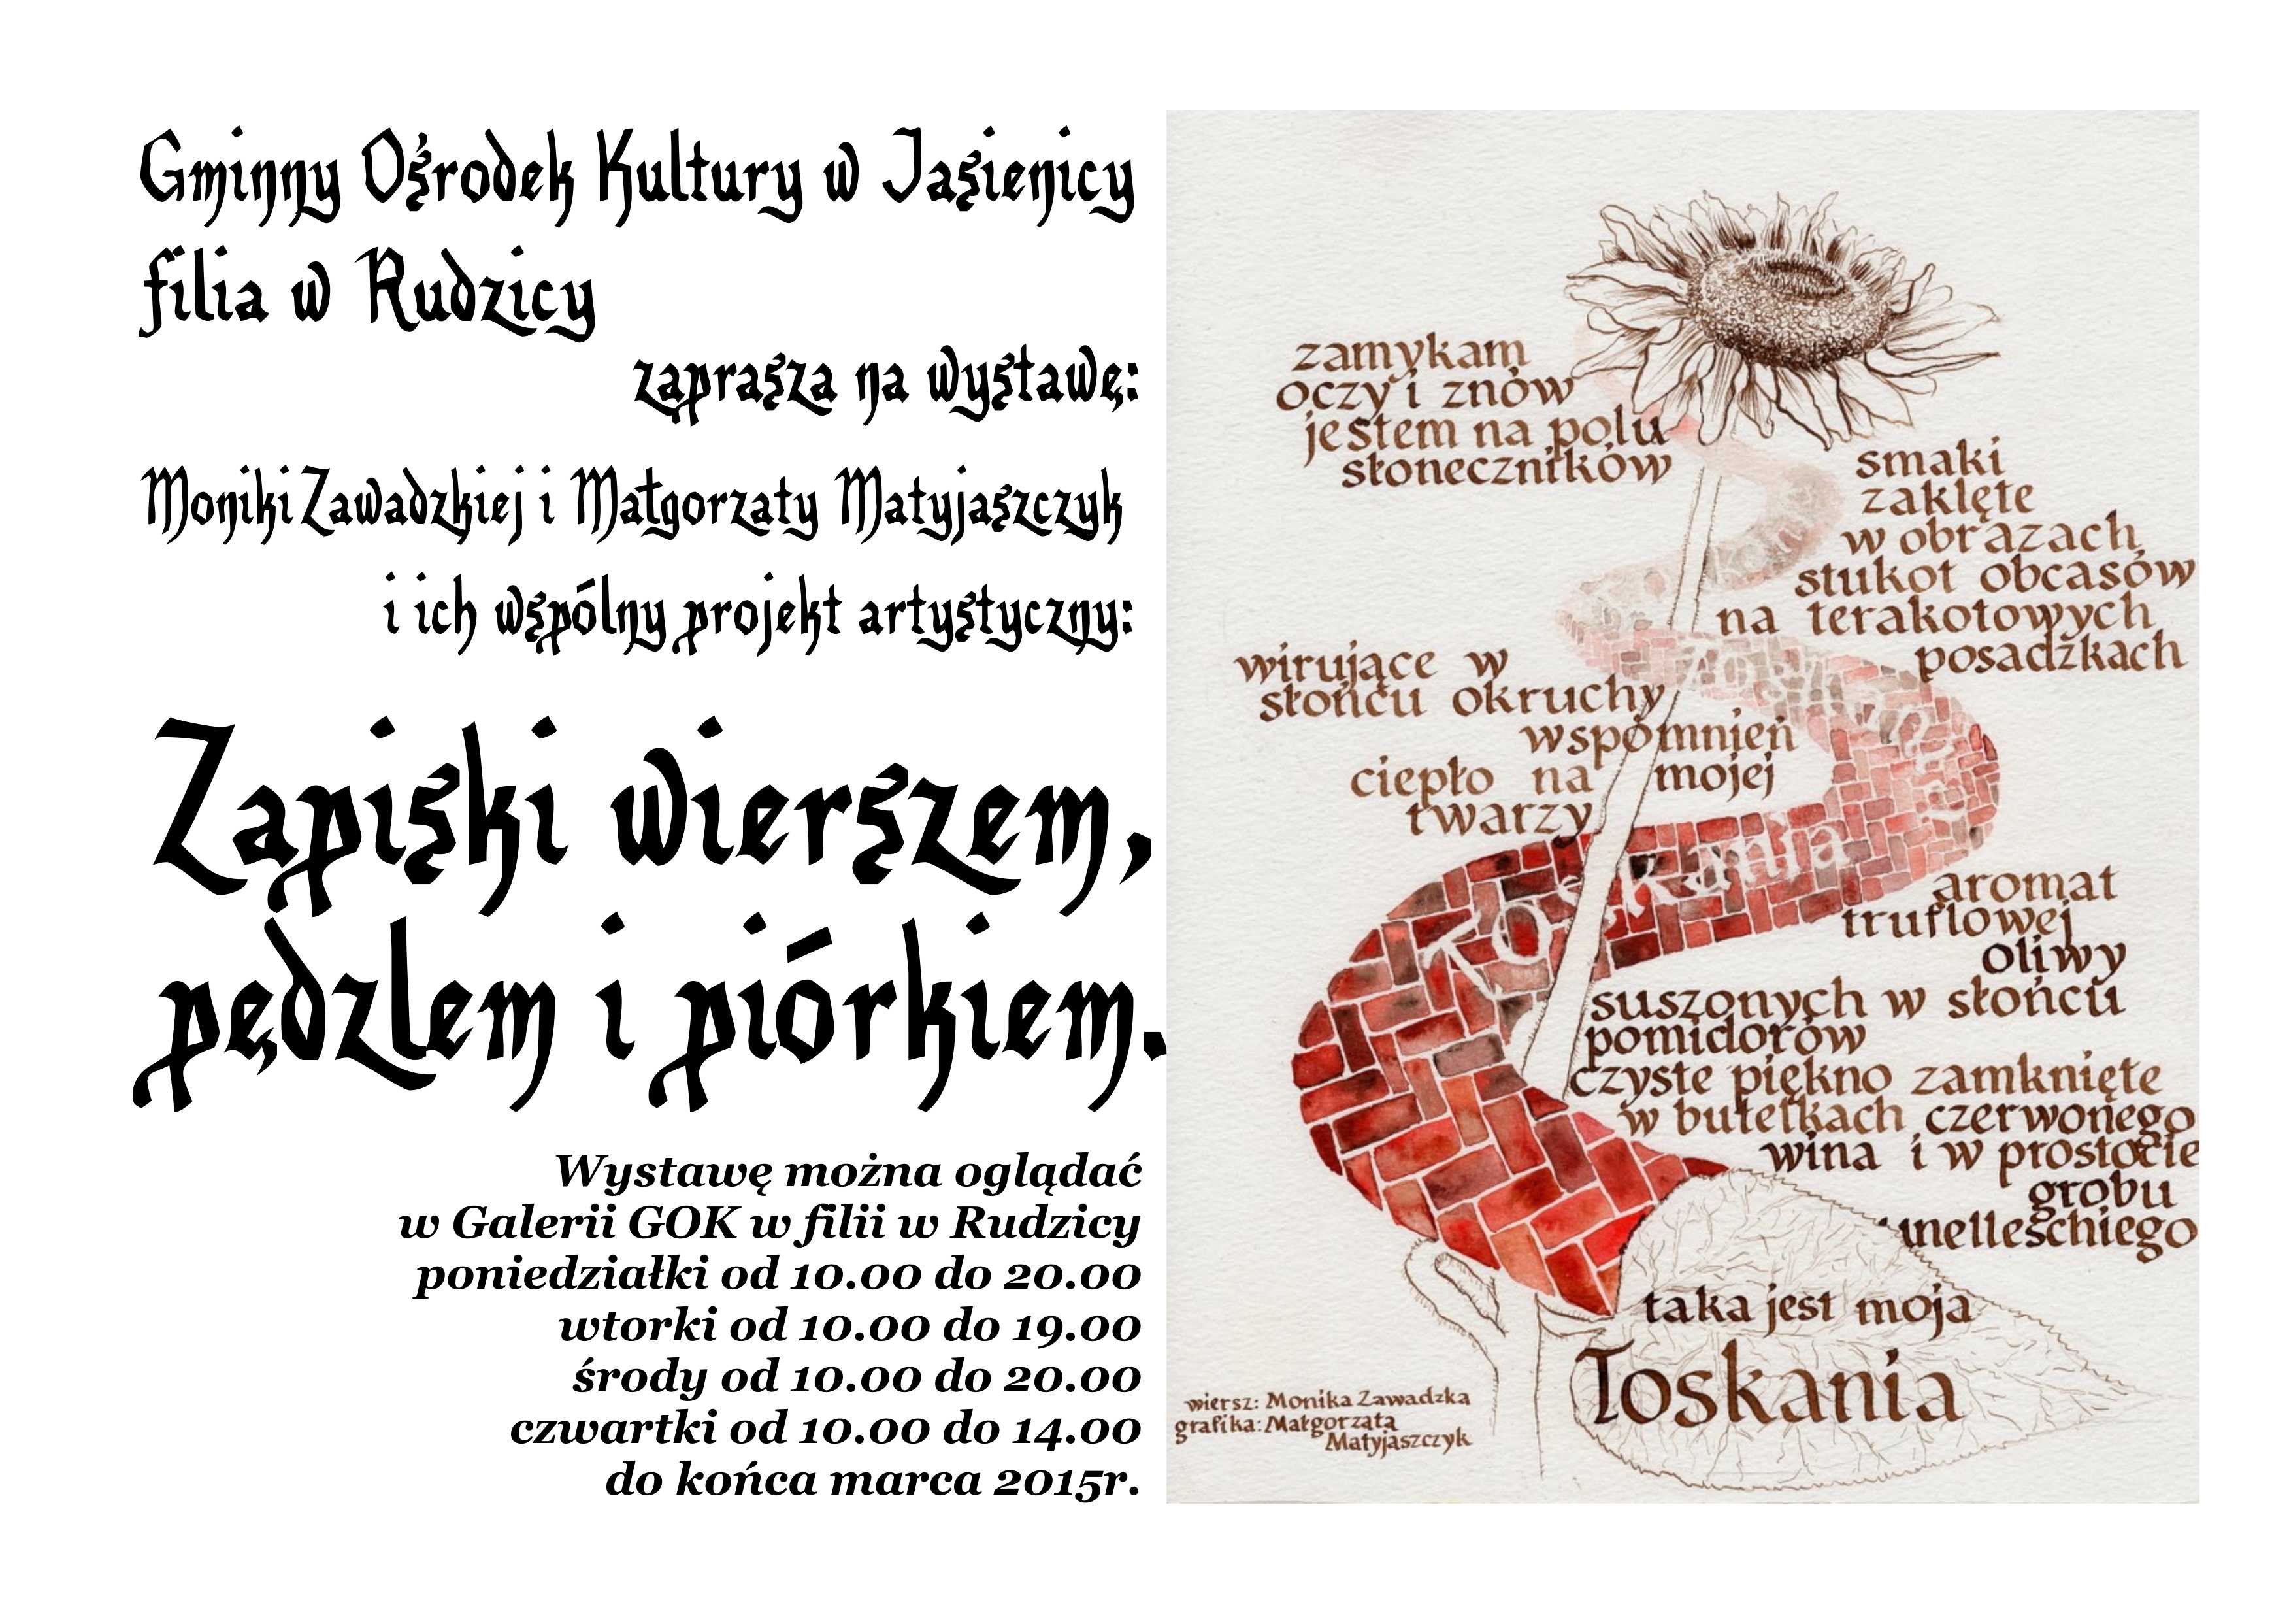 Gminny Ośrodek Kultury w Jasienicy
filia w Rudzicy
zaprasza na wystawę:
Moniki Zawadzkiej i Małgorzaty Matyjaszczyk
i ich wspólny projekt artystyczny:
Zapiski wierszem,
pędzlem i piórkiem.
Wystawę można oglądać
w Galerii GOK w filii w Rudzicy
poniedziałki od 10.00 do 20.00
wtorki od 10.00 do 19.00
środy od 10.00 do 20.00
czwartki od 10.00 do 14.00
do końca marca 2015r.
zamykam
oczy i znów
jestem na polu
słoneczników
smaki
zaklęte
w obrazach
stukot obcasów
na terakotowych
posadzkach
wirujące w
słońcu okruchy
wspomnień
ciepło na mojej
twarzy
aromat
truflowej
oliwy
suszonych w słońcu
pomidorów
czyste piękno zamknięte
w butelkach czerwonego
wina i w prostocie
grobu
unelleschiego
taka jest moja
Toskania
wiersz: Monika Zawadzka
grafika: Małgorzata
Matyjaszczyk